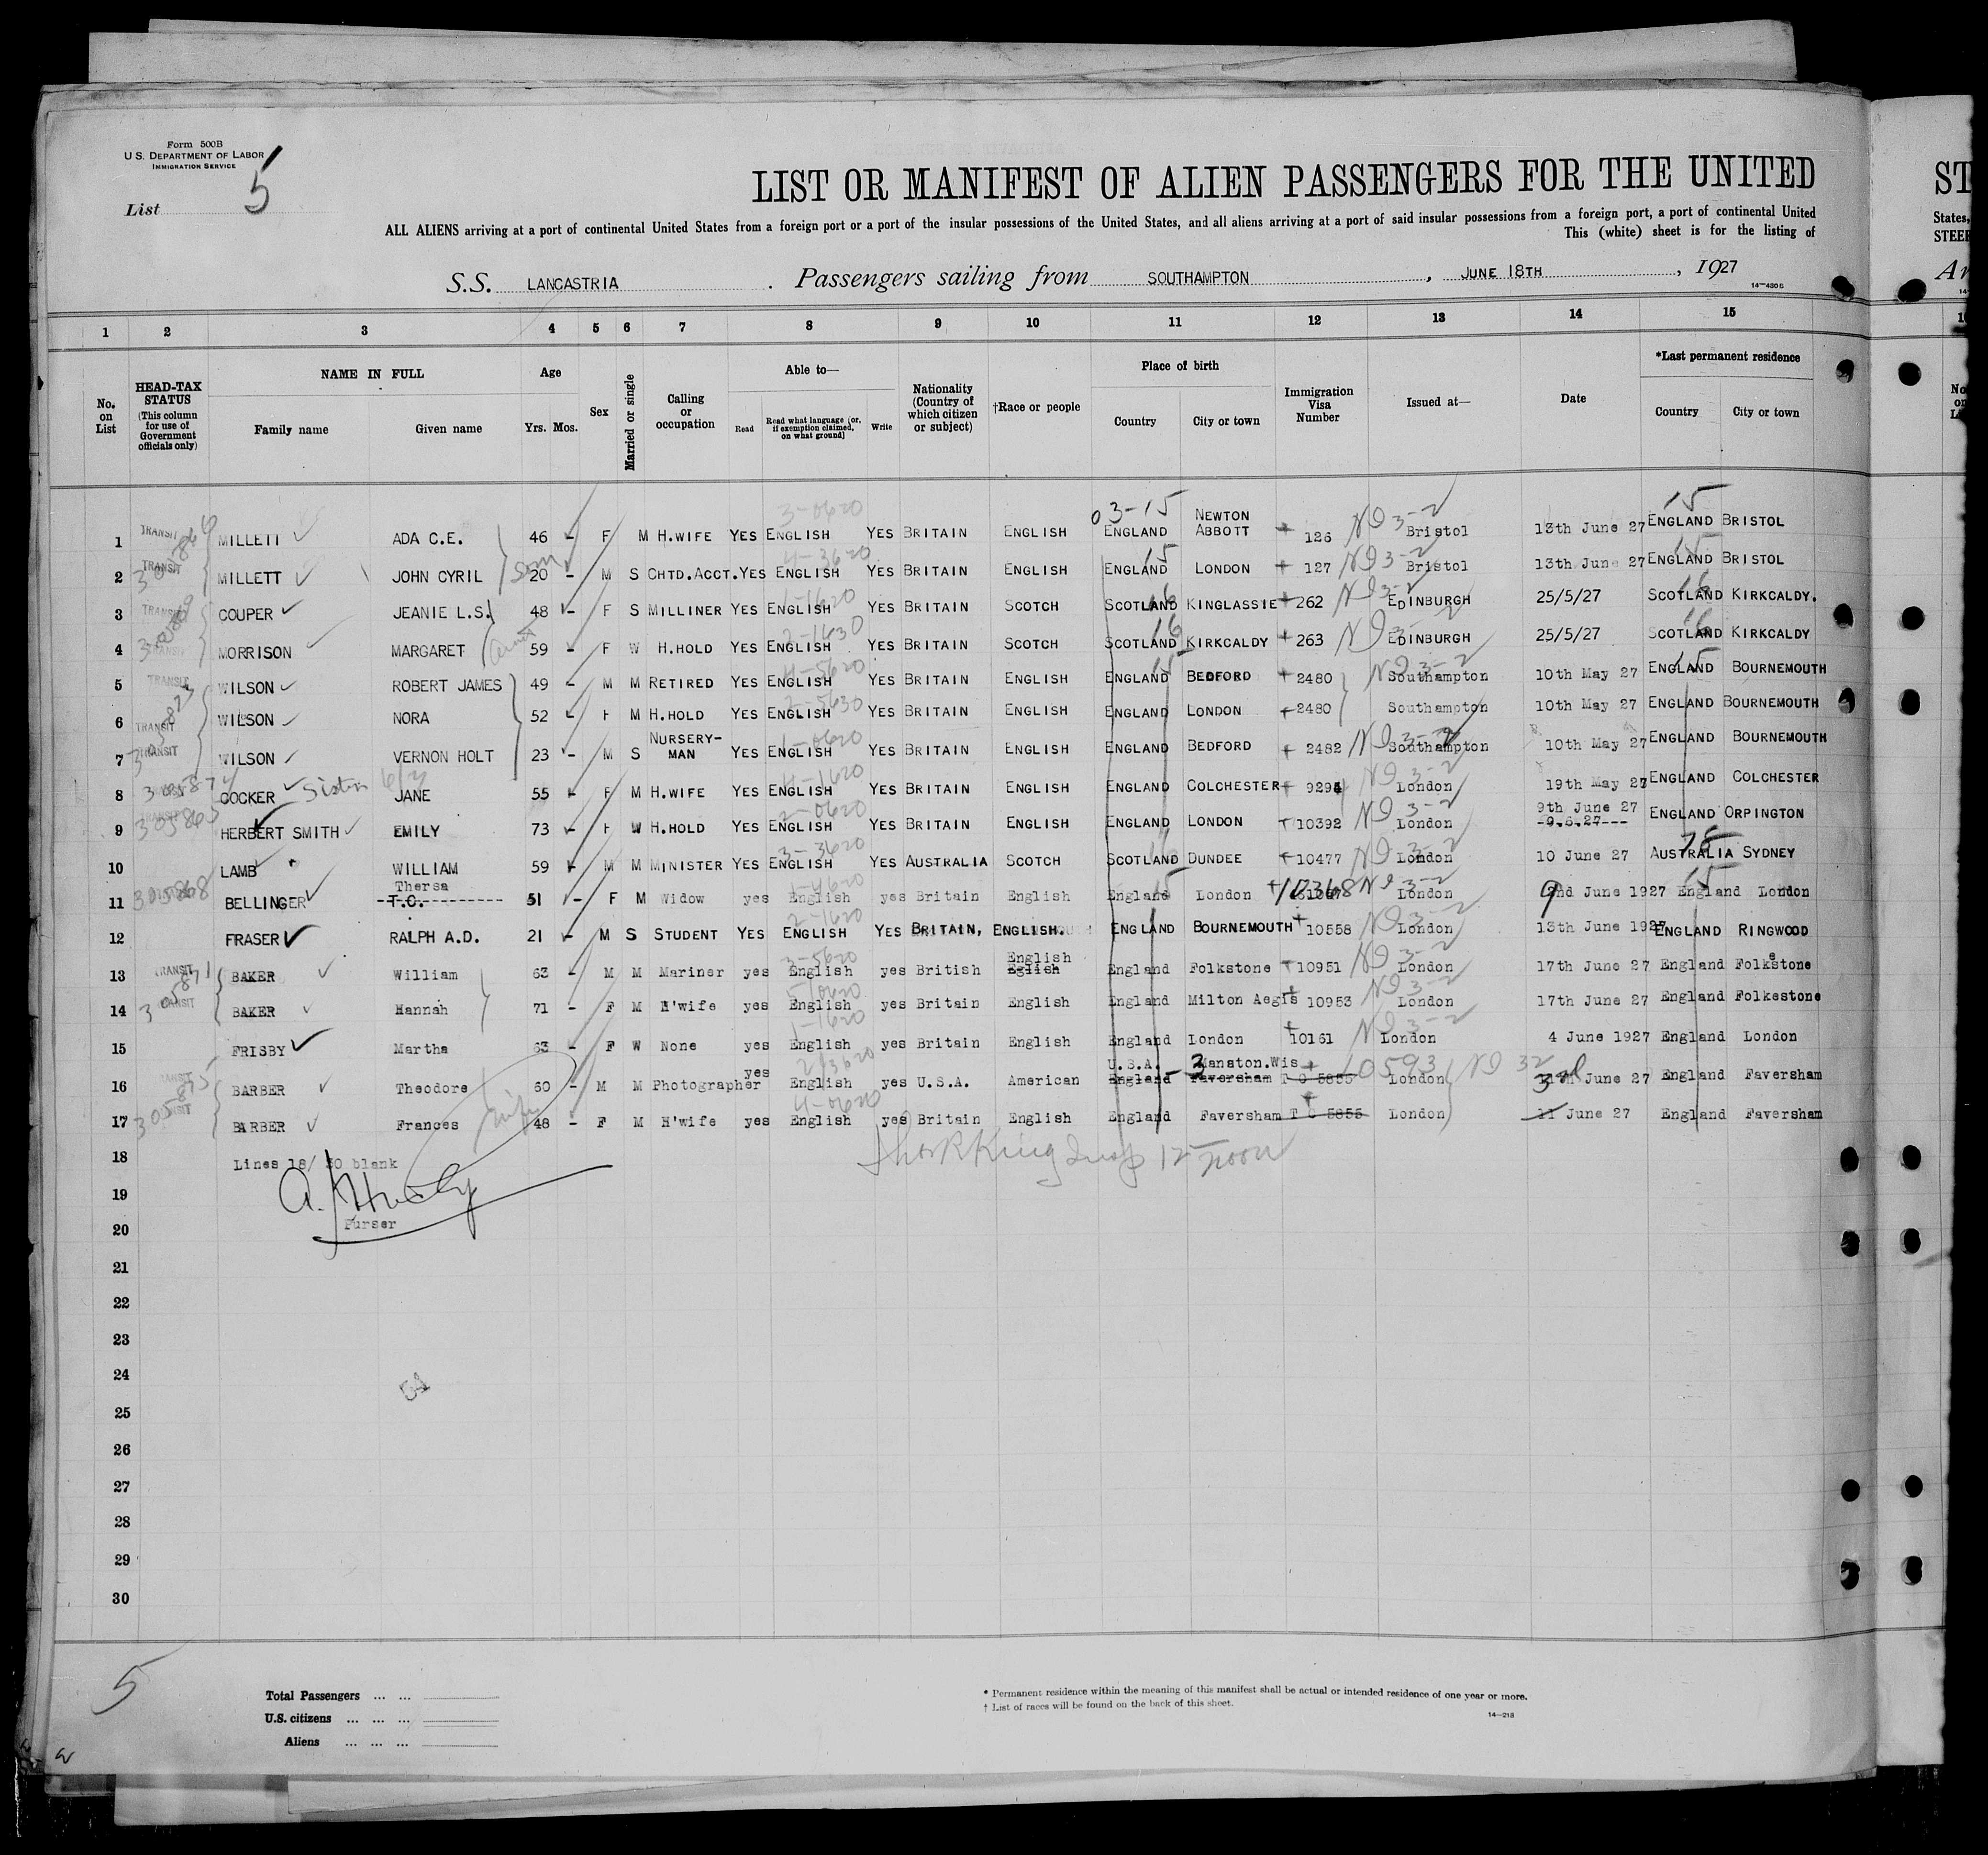 Form 500B
U.S. DEPARTMENT OF LABOR
IMMIGRATION SERVICE
List 5
LIST OR MANIFEST OF ALIEN PASSENGERS FOR THE UNITED
ST
ALL ALIENS arriving at a port of continental United States from a foreign port or a port of the insular possessions of the United States, and all aliens arriving at a port of said insular possessions from a foreign port, a port of continental United
States,
This (white) sheet is for the listing of
STEER
S.S. LANCASTRIA. Passengers sailing from SOUTHAMPTON, JUNE 18TH, 1927
14-430B
1 2 3 4 5 6 7 8 9 10 11 12 13 14 15
No. on List
HEAD-TAX STATUS (This column for use of Government officials only)
NAME IN FULL
Family name
Given name
Age
Yrs. Mos.
Sex
Married or single
Calling or occupation
Able to—
Read
Read what language (or, if exemption claimed, on what ground)
Write
Nationality (Country of which citizen or subject)
†Race or people
Place of birth
Country
City or town
Immigration Visa Number
Issued at—
Date
*Last permanent residence
Country
City or town
1 TRANSIT MILLETT ADA C.E. 46 - F M H.WIFE YES ENGLISH YES BRITAIN ENGLISH ENGLAND NEWTON ABBOTT 126 Bristol 13th June 27 ENGLAND BRISTOL
2 TRANSIT MILLETT JOHN CYRIL son 20 - M S CHTD.ACCT. YES ENGLISH YES BRITAIN ENGLISH ENGLAND LONDON 127 Bristol 13th June 27 ENGLAND BRISTOL
3 TRANSIT COUPER JEANIE L.S. 48 - F S MILLINER YES ENGLISH YES BRITAIN SCOTCH SCOTLAND KINGLASSIE 262 EDINBURGH 25/5/27 SCOTLAND KIRKCALDY.
4 TRANSIT MORRISON MARGARET aunt 59 - F W H.HOLD YES ENGLISH YES BRITAIN SCOTCH SCOTLAND KIRKCALDY 263 EDINBURGH 25/5/27 SCOTLAND KIRKCALDY
5 TRANSIT WILSON ROBERT JAMES 49 - M M RETIRED YES ENGLISH YES BRITAIN ENGLISH ENGLAND BEDFORD 2480 Southampton 10th May 27 ENGLAND BOURNEMOUTH
6 TRANSIT WILSON NORA 52 - F M H.HOLD YES ENGLISH YES BRITAIN ENGLISH ENGLAND LONDON 2480 Southampton 10th May 27 ENGLAND BOURNEMOUTH
7 TRANSIT WILSON VERNON HOLT 23 - M S NURSERY-MAN YES ENGLISH YES BRITAIN ENGLISH ENGLAND BEDFORD 2482 Southampton 10th May 27 ENGLAND BOURNEMOUTH
8 305874 COCKER Sister JANE 55 - F M H.WIFE YES ENGLISH YES BRITAIN ENGLISH ENGLAND COLCHESTER 9294 London 19th May 27 ENGLAND COLCHESTER
9 305865 HERBERT SMITH EMILY 73 - F W H.HOLD YES ENGLISH YES BRITAIN ENGLISH ENGLAND LONDON 10392 London 9th June 27 ENGLAND ORPINGTON
10 LAMB WILLIAM 59 - M M MINISTER YES ENGLISH YES AUSTRALIA SCOTCH SCOTLAND DUNDEE 10477 London 10 June 27 AUSTRALIA SYDNEY
11 305868 BELLINGER Thersa T.C. 51 - F M Widow yes English yes Britain English England London 10368 London 9 June 1927 England London
12 FRASER RALPH A.D. 21 - M S STUDENT YES ENGLISH YES BRITAIN, ENGLISH. ENGLAND BOURNEMOUTH 10558 London 13th June 1927 ENGLAND RINGWOOD
13 TRANSIT BAKER William 63 - M M Mariner yes English yes British English Eglish England Folkstone 10951 London 17th June 27 England Folkestone
14 TRANSIT BAKER Hannah 71 - F M H'wife yes English yes Britain English England Milton Aegis 10953 London 17th June 27 England Folkestone
15 FRISBY Martha 63 - F W None yes English yes Britain English England London 10161 London 4 June 1927 England London
16 BARBER Theodore 60 - M M Photographer yes English yes U.S.A. American U.S.A. England Manston.Wis Faversham T C 5855 10593 London June 27 England Faversham
17 BARBER Frances wife 48 - F M H'wife yes English yes Britain English England Faversham T C 5855 London 11 June 27 England Faversham
18 Lines 18/30 blank
19
Purser
20
21
22
23
24
25
26
27
28
29
30
5
Total Passengers ... ...
U.S. citizens ... ... ...
Aliens ... ... ...
* Permanent residence within the meaning of this manifest shall be actual or intended residence of one year or more.
† List of races will be found on the back of this sheet.
14-218